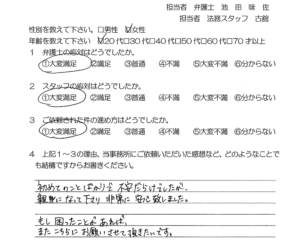 担当者 弁護士 池 田 味 佐
担当者 法務スタッフ 古舘
性別を教えて下さい。□男性 ☑女性
年齢を教えて下さい ☑20代□30代□40代□50代□60代□70才以上
1 弁護士の応対はどうでしたか。
①大変満足 ②満足 ③普通 ④不満 ⑤大変不満 ⑥分からない
2 スタッフの応対はどうでしたか。
①大変満足 ②満足 ③普通 ④不満 ⑤大変不満 ⑥分からない
3 ご依頼された件の進め方はどうでしたか。
①大変満足 ②満足 ③普通 ④不満 ⑤大変不満 ⑥分からない
4 上記1～3の理由、当事務所にご依頼いただいた感想など、どのようなことで
も結構ですからお書きください。
初めてのことばかりで不安だらけでしたが、
親身になって下さり非常に安心致しました。
もし困ったことがあれば、
またこちらにお願いさせて頂きたいです。